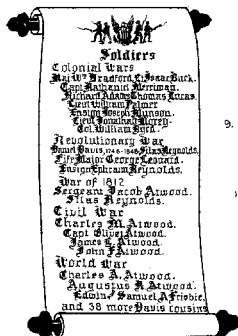 Soldiers
Colonial Wars
Maj. Wm. Bradford. Lt. Isaac Buck.
Capt. Nathaniel Merriman.
Richard Adams. Thomas Lucas.
Lieut. William Palmer
Ensign Joseph Munson.
Lieut. Jonathan
Col. William Byrd.
Revolutionary War
David Davis, 1746-1848. Silas Reynolds.
Fife Major George Leonard.
Ensign Ephraim Reynolds.
War of 1812
Sergeant Jacob Atwood.
Silas Reynolds.
Civil War
Charles M. Atwood.
Capt. Oliver Atwood.
James L. Atwood.
John F. Atwood.
World War
Charles A. Atwood.
Augustus R. Atwood.
Edwin Samuel A. Frisbie.
and 38 more Davis cousins
9.